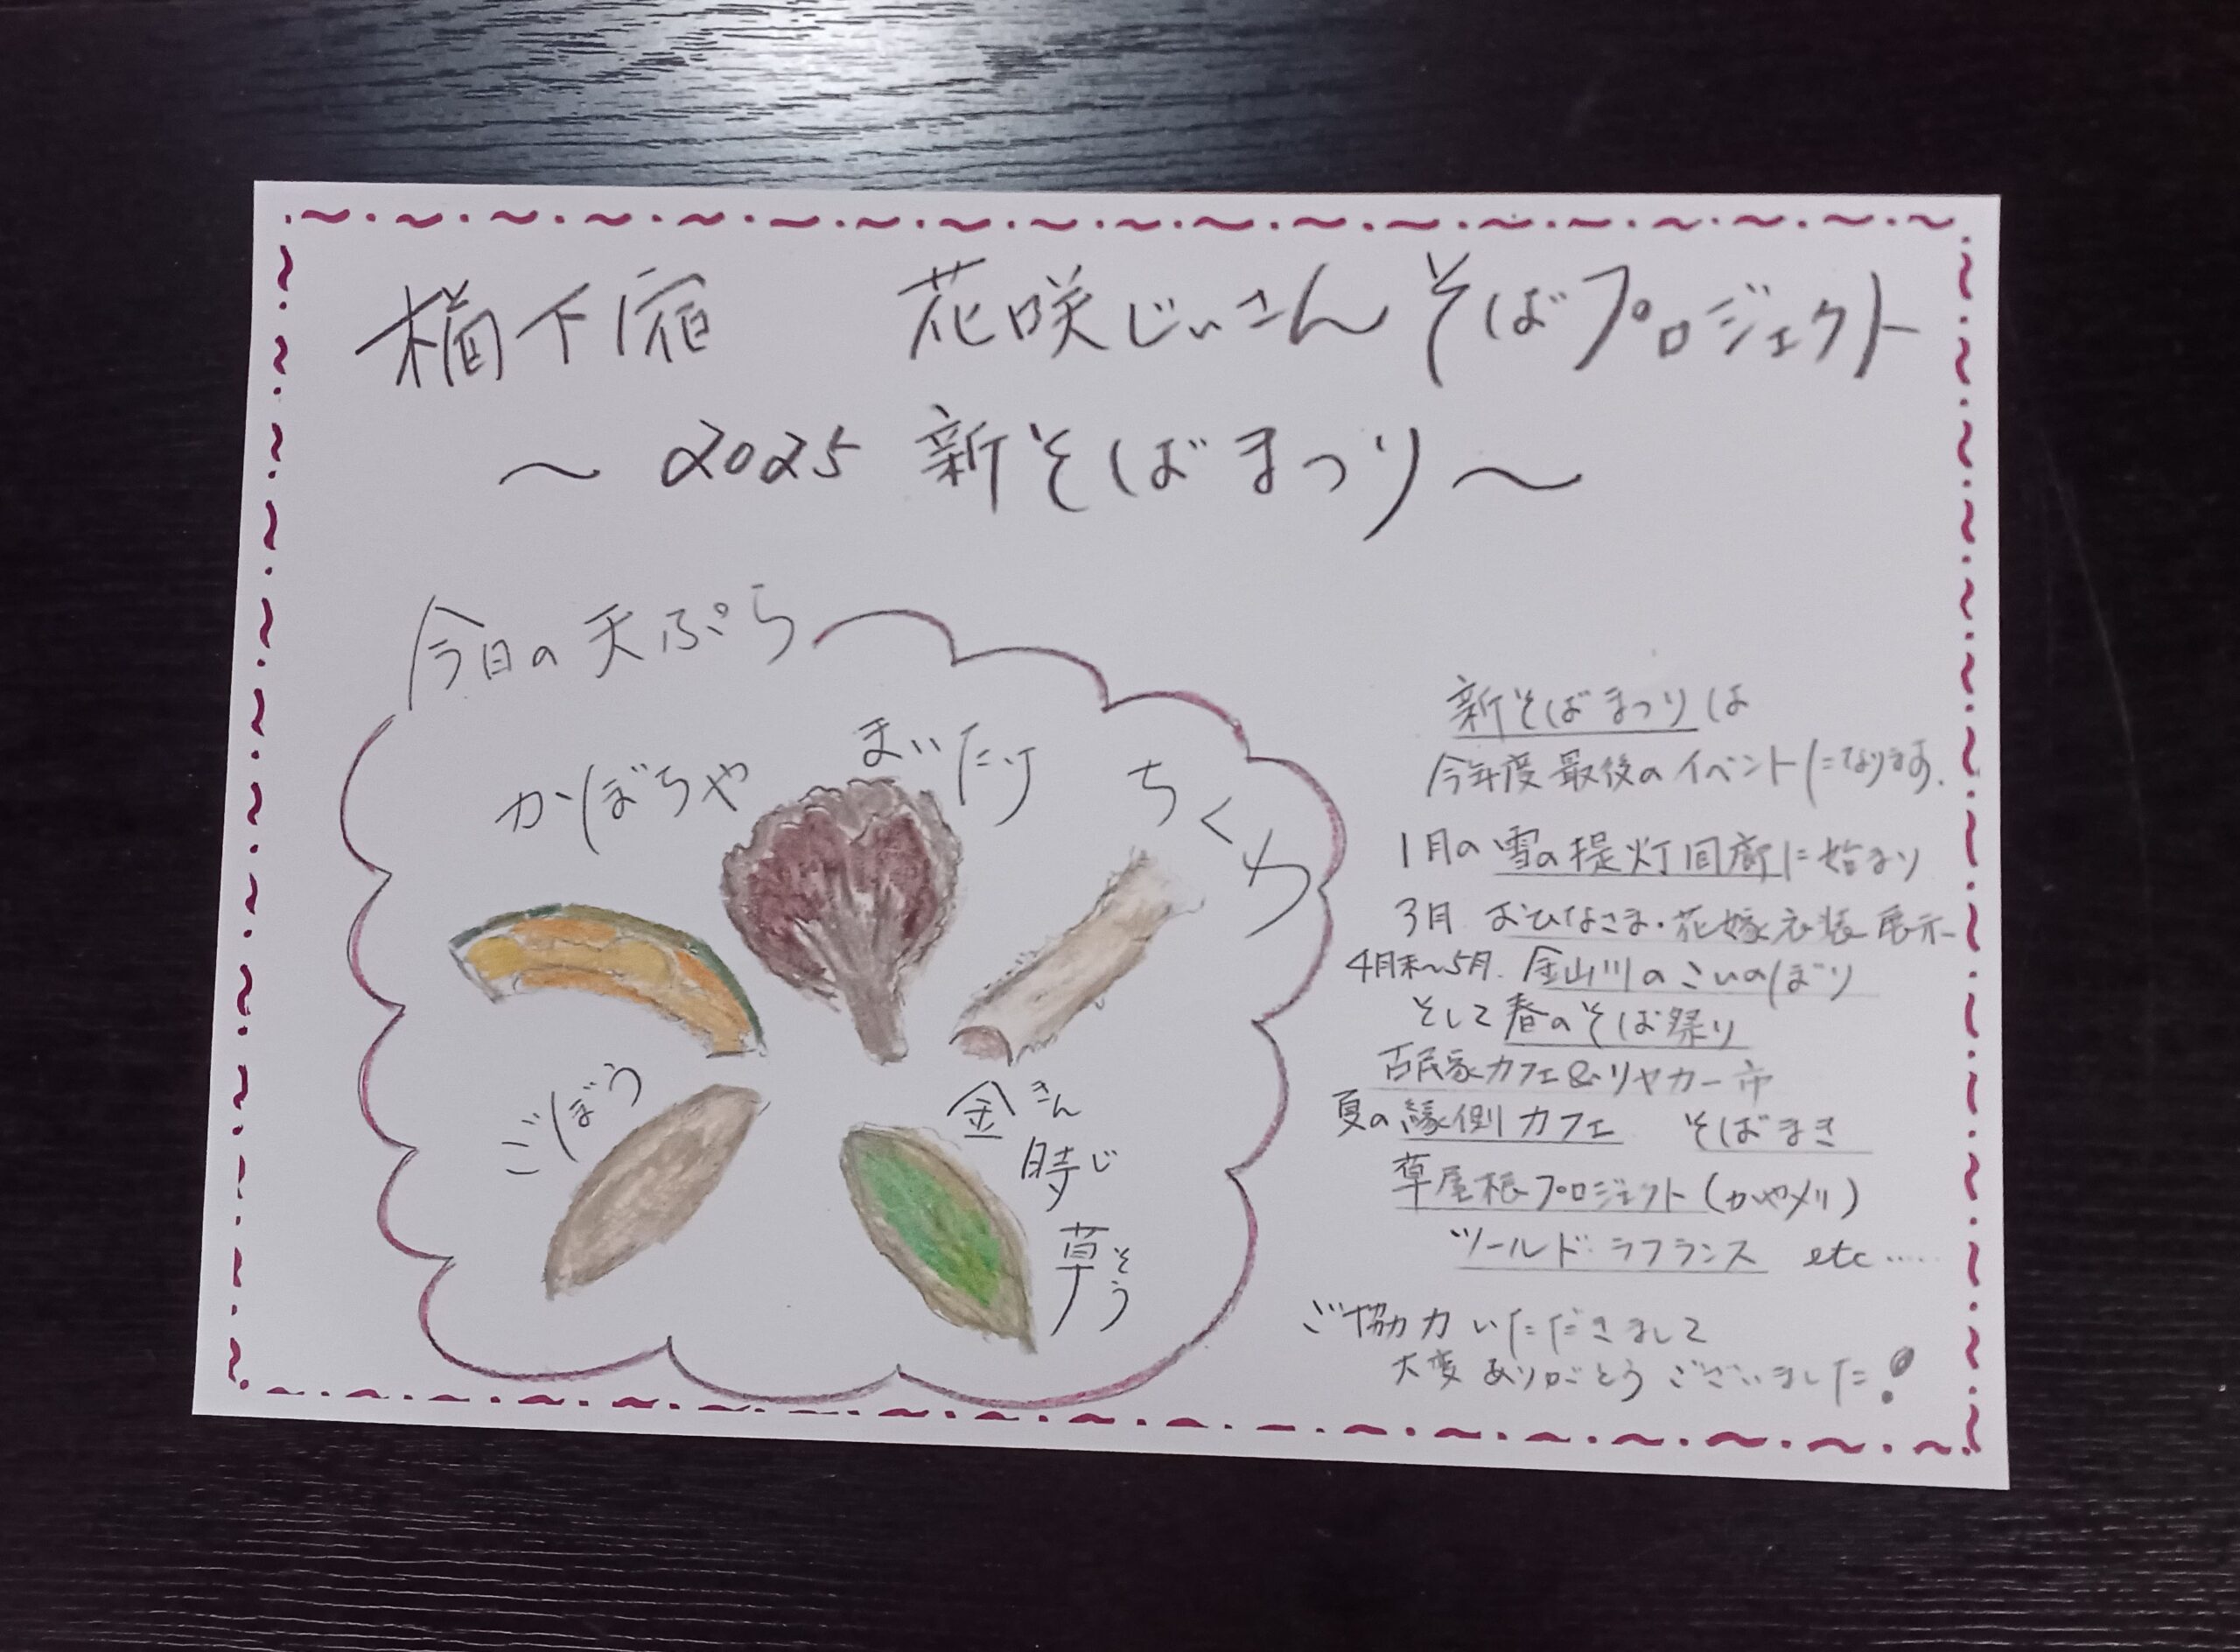 楢下宿　花咲じいさんそばプロジェクト
～2025 新そばまつり～
今日の天ぷら
かぼちゃ
まいたけ
ちくわ
ごぼう
金時草
きんじそう
新そばまつりは
今年度最後のイベントになります.
1月の雪の提灯回廊に始まり
3月 おひなさま・花嫁衣装展示
4月末～5月. 金山川のこいのぼり
そして春のそば祭り
古民家カフェ&リヤカー市
夏の縁側カフェ　そばまき
草屋根プロジェクト(かやメリ)
ツールド・ラフランス etc……
ご協力いただきまして
大変ありがとうございました!